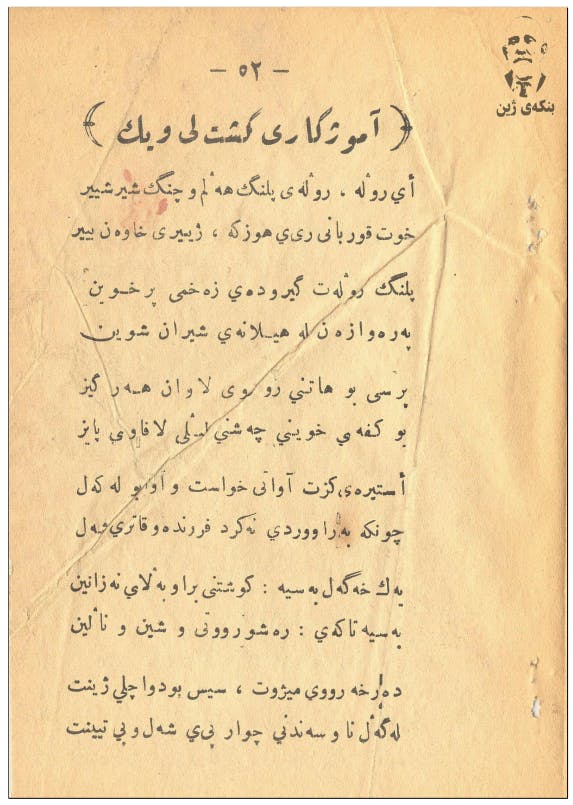 — ٥٢ —
بنکەی ژین
﴿ آموژگاری گشت لی ویك ﴾
أی رولە ، رولە ی پلنگ هەلم و چنگ شیر شییر
خوت قوربانی ریی هوزکە ، ژییری خاوەن بییر
پلنگ رولەت گیرودەی زەخمی پر خوین
پەرەوازەن لە هیلانەی شیران شوین
پرسی بو هاتنی روی لاوان هەرگیز
بو کفەی خوینی چەشنی لافاوی پایز
أستیرەی گزت آواتی خواست و آوابو لە کەل
چونکە بەراووردی نەکرد فرزندە و قاتری
یەك خەگەل بەسیە : کوشتنی برا و بەلای نەزانین
بەسیە تاکەی : رەشو رووتی و شین و نالین
دەرخە رووی میژوت ، سیس بو دوا چلی ژینت
لەگەل ناوسەندنی چوار پی شەل و بی تیینت